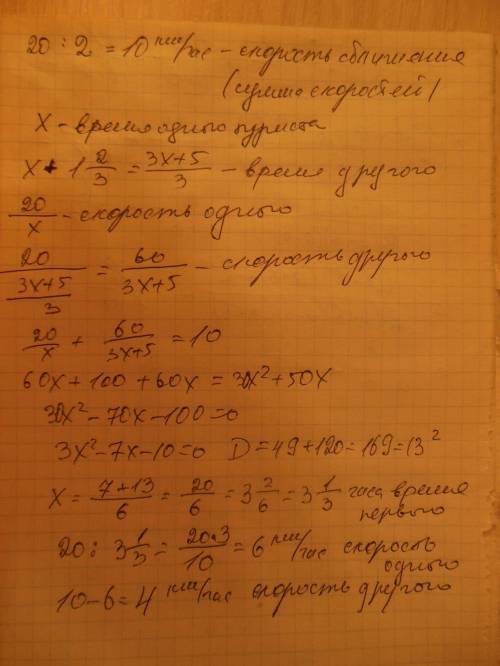 20 : 2 = 10 км/час - скорость сближения
(сумма скоростей)
X - время одного туриста
X + 1 2/3 = (3X+5)/3 - время другого
20/X - скорость одного
20/((3X+5)/3) = 60/(3X+5) - скорость другого
20/X + 60/(3X+5) = 10
60X + 100 + 60X = 30X² + 50X
30X² - 70X - 100 = 0
3X² - 7X - 10 = 0 D = 49 + 120 = 169 = 13²
X = (7+13)/6 = 20/6 = 3 2/6 = 3 1/3 часа время
первого
20 : 3 1/3 = (20·3)/10 = 6 км/час скорость
одного
10 - 6 = 4 км/час скорость другого